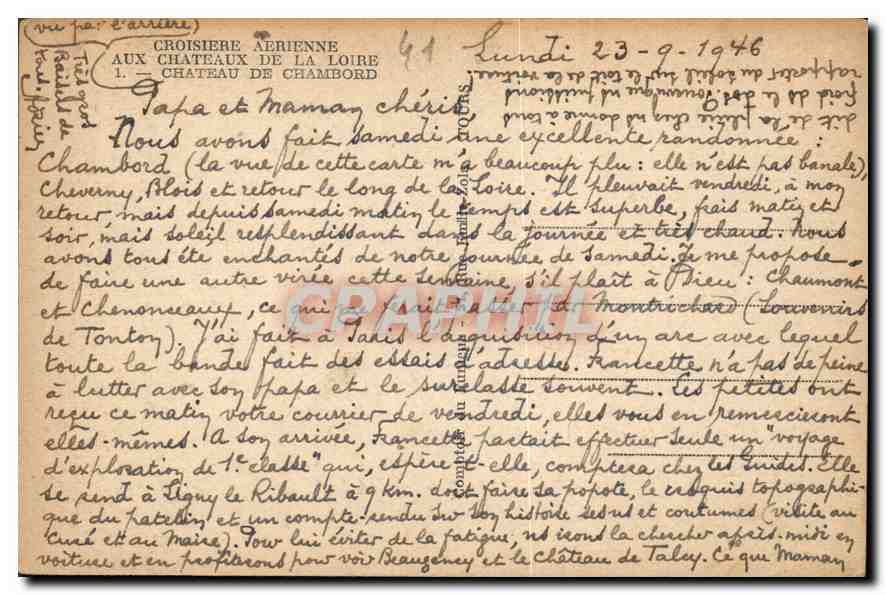 (vu par l'arrière)
CROISIERE AERIENNE
AUX CHATEAUX DE LA LOIRE
1. — CHATEAU DE CHAMBORD
41
Lundi 23-9-1946
Papa et Maman chéris,
Nous avons fait samedi une excellente randonnée :
Chambord (la vue de cette carte m'a beaucoup plu : elle n'est pas banale),
Cheverny, Blois et retour le long de la Loire. Il pleuvait vendredi, à mon
retour, mais depuis samedi matin le temps est superbe, frais matin et
soir, mais soleil resplendissant dans la journée et très chaud. Nous
avons tous été enchantés de notre journée de samedi. Je me propose
de faire une autre virée cette semaine, s'il plaît à Dieu : Chaumont
et Chenonceaux, ce qui me ferait passer par Montrichard (Souvenirs
de Tonton). J'ai fait à Paris l'acquisition d'un arc avec lequel
toute la bande fait des essais d'adresse. Francette n'a pas de peine
à lutter avec son papa et le surclasse souvent. Les petites ont
reçu ce matin votre courrier de vendredi, elles vous en remercieront
elles-mêmes. A son arrivée, Francette partait effectuer seule un "voyage
d'exploration de 1e classe" qui, espère-t-elle, comptera chez les Guides. Elle
se rend à Ligny le Ribault à 9 km. doit faire sa popote, le croquis topographi-
que du patelin et un compte-rendu sur son histoire ses us et coutumes (visite au
Curé et au Maire). Pour lui éviter de la fatigue, ns irons la chercher après-midi en
voiture et en profiterons pour voir Beaugency et le château de Talcy. Ce que Maman
dit de la pluie chez ns donne à tous
froid ds le dos
rapporter du soleil sur le toit de la voiture.
Très gros
Baisers de
tous.
CPAPHIL
TOURS